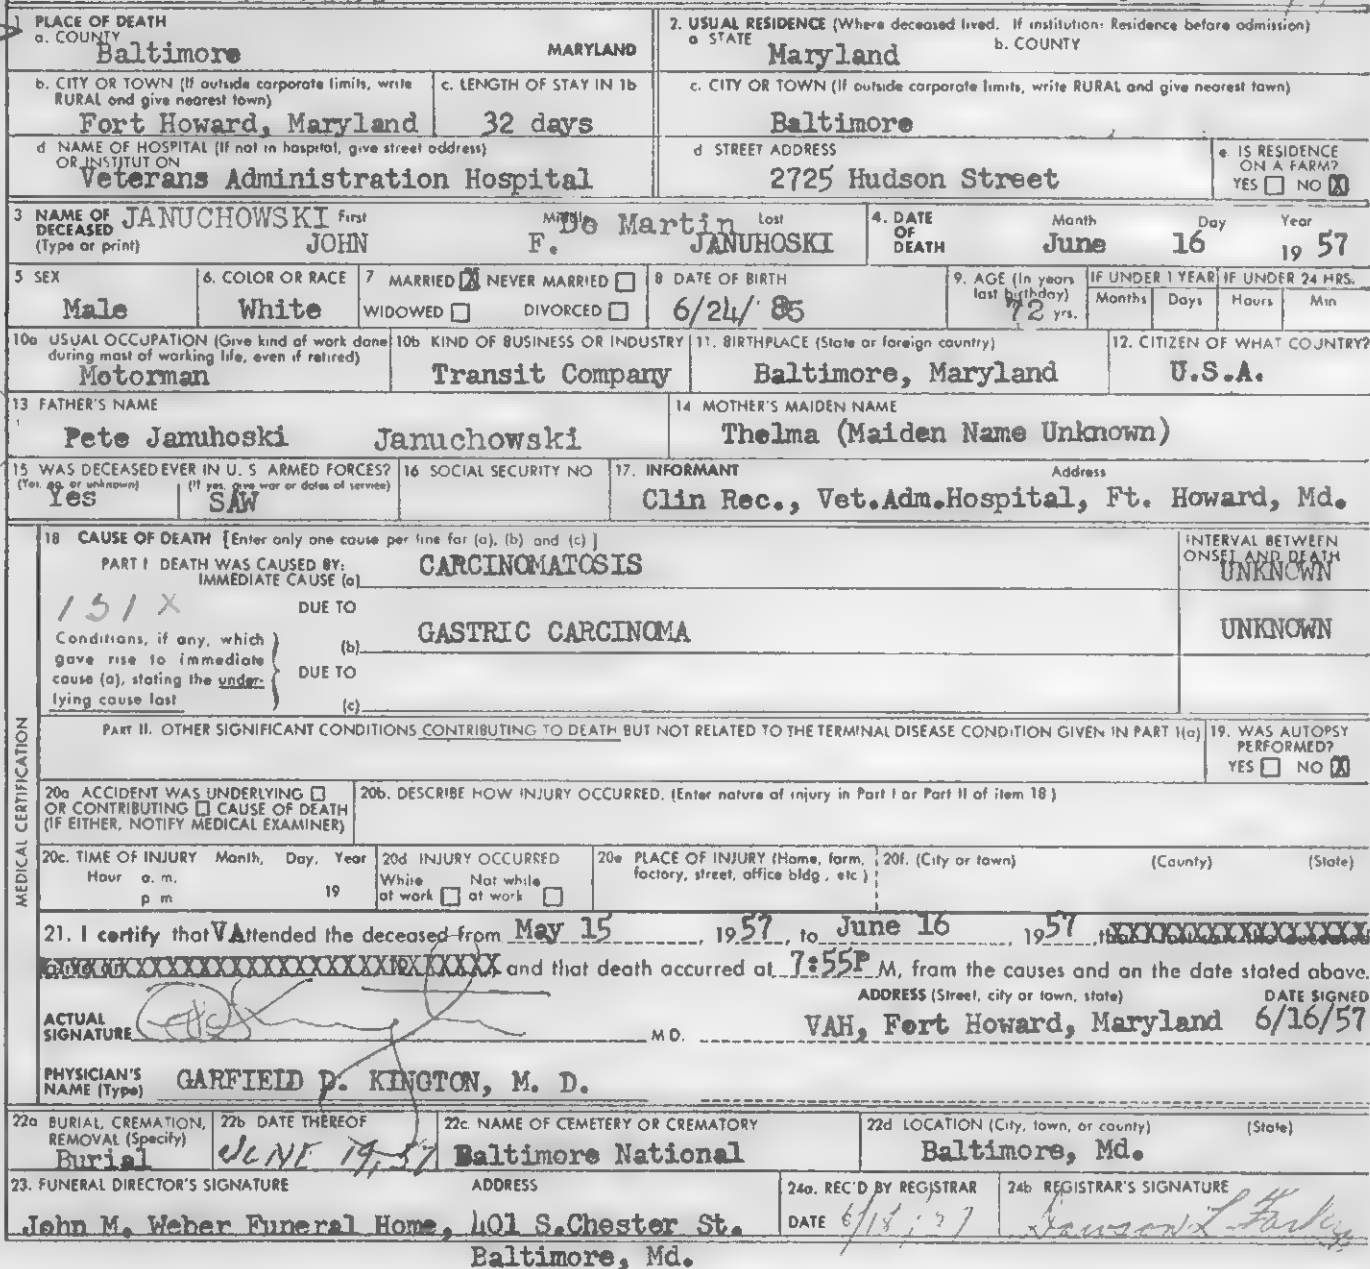 1 PLACE OF DEATH
a. COUNTY
Baltimore MARYLAND
2. USUAL RESIDENCE (Where deceased lived. If institution: Residence before admission)
a STATE b. COUNTY
Maryland
b. CITY OR TOWN (If outside corporate limits, write
RURAL and give nearest town)
Fort Howard, Maryland
c. LENGTH OF STAY IN 1b
32 days
c. CITY OR TOWN (If outside corporate limits, write RURAL and give nearest town)
Baltimore
d NAME OF HOSPITAL (If not in hospital, give street address)
OR INSTITUTION
Veterans Administration Hospital
d STREET ADDRESS
2725 Hudson Street
e. IS RESIDENCE
ON A FARM?
YES NO X
3 NAME OF
DECEASED
(Type or print)
First Middle Last
JANUCHOWSKI De Martin
JOHN F. JANUHOSKI
4. DATE
OF
DEATH
Month Day Year
June 16 1957
5 SEX
Male
6. COLOR OR RACE
White
7 MARRIED X NEVER MARRIED
WIDOWED DIVORCED
8 DATE OF BIRTH
6/24/'85
9. AGE (In years
last birthday)
72 yrs.
IF UNDER 1 YEAR IF UNDER 24 HRS.
Months Days Hours Min
10a USUAL OCCUPATION (Give kind of work done
during most of working life, even if retired)
Motorman
10b KIND OF BUSINESS OR INDUSTRY
Transit Company
11. BIRTHPLACE (State or foreign country)
Baltimore, Maryland
12. CITIZEN OF WHAT COUNTRY?
U.S.A.
13 FATHER'S NAME
Pete Januhoski Januchowski
14 MOTHER'S MAIDEN NAME
Thelma (Maiden Name Unknown)
15 WAS DECEASED EVER IN U. S ARMED FORCES?
(Yes, no, or unknown) (If yes, give war or dates of service)
Yes SAW
16 SOCIAL SECURITY NO
17. INFORMANT Address
Clin Rec., Vet.Adm.Hospital, Ft. Howard, Md.
MEDICAL CERTIFICATION
18 CAUSE OF DEATH [Enter only one cause per line for (a), (b) and (c) ]
PART I DEATH WAS CAUSED BY:
IMMEDIATE CAUSE (a) CARCINOMATOSIS
INTERVAL BETWEEN
ONSET AND DEATH
UNKNOWN
151 X
DUE TO
Conditions, if any, which
gave rise to immediate
cause (a), stating the under-
lying cause last
(b) GASTRIC CARCINOMA UNKNOWN
DUE TO
(c)
PART II. OTHER SIGNIFICANT CONDITIONS CONTRIBUTING TO DEATH BUT NOT RELATED TO THE TERMINAL DISEASE CONDITION GIVEN IN PART I(a)
19. WAS AUTOPSY
PERFORMED?
YES NO X
20a ACCIDENT WAS UNDERLYING
OR CONTRIBUTING CAUSE OF DEATH
(IF EITHER, NOTIFY MEDICAL EXAMINER)
20b. DESCRIBE HOW INJURY OCCURRED. (Enter nature of injury in Part I or Part II of item 18 )
20c. TIME OF INJURY Month, Day, Year
Hour a. m.
p m 19
20d INJURY OCCURRED
While at work Not while at work
20e PLACE OF INJURY (Home, farm,
factory, street, office bldg , etc )
20f. (City or town) (County) (State)
21. I certify that VA attended the deceased from May 15 1957, to June 16 1957,
and that death occurred at 7:55P M, from the causes and on the date stated above.
ADDRESS (Street, city or town, state) DATE SIGNED
ACTUAL
SIGNATURE M D. VAH, Fort Howard, Maryland 6/16/57
PHYSICIAN'S
NAME (Type) GARFIELD D. KINGTON, M. D.
22a BURIAL, CREMATION,
REMOVAL (Specify)
Burial
22b DATE THEREOF
JUNE 19, 57
22c. NAME OF CEMETERY OR CREMATORY
Baltimore National
22d LOCATION (City, town, or county) (State)
Baltimore, Md.
23. FUNERAL DIRECTOR'S SIGNATURE ADDRESS
John M. Weber Funeral Home, 401 S.Chester St.
Baltimore, Md.
24a. REC'D BY REGISTRAR
DATE 6/18/57
24b REGISTRAR'S SIGNATURE